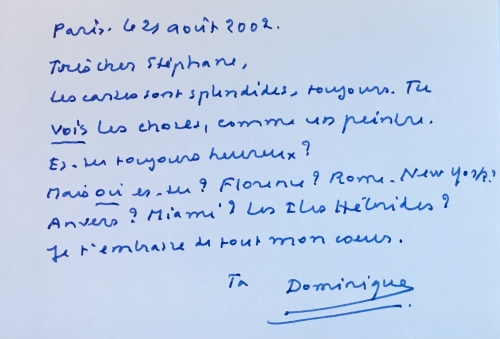 Paris. le 21 août 2002.
Très cher Stéphane,
Les cartes sont splendides, toujours. Tu
vois les choses, comme un peintre.
Es-tu toujours heureux ?
Mais où es-tu ? Florence ? Rome. New York ?
Anvers ? Miami ? Les Iles Hébrides ?
Je t'embrasse de tout mon coeur.
Ta Dominique